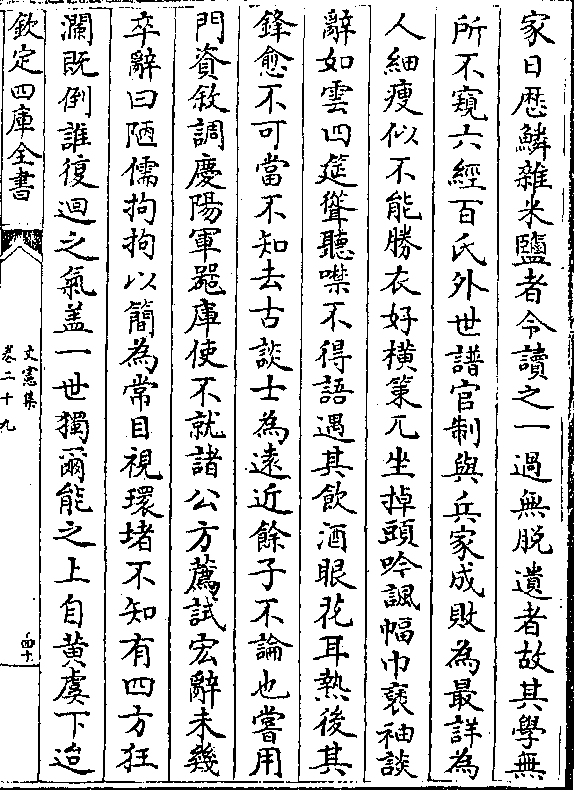 家日厯鱗雜米鹽者令讀之一過無脱遺者故其學無
所不窺六經百氏外世譜官制與兵家成敗為最詳為
人細瘦似不能勝衣好橫策兀坐掉頭吟諷幅巾裒袖談
辭如雲四筵聳聽噤不得語遇其飲酒眼花耳熱後其
鋒愈不可當不知去古談士為遠近餘子不論也嘗用
門資敘調慶陽軍噐庫使不就諸公方薦試宏辭未幾
卒辭曰陋儒拘拘以簡為常目視環堵不知有四方狂
瀾既倒誰復迴之氣盖一世獨爾能之上自黄虞下迨
欽定四庫全書
文憲集
卷二十九
四十